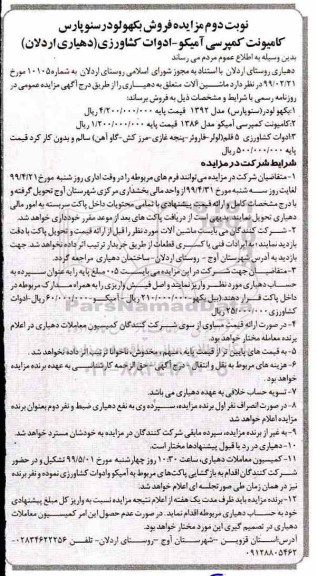 نوبت دوم مزایده فروش بکهولودر سنو پارس
کامیونت کمپرسی آمیکو-ادوات کشاورزی(دهیاری اردلان)
بدین وسیله به اطلاع عموم مردم می رساند
دهیاری روستای اردلان با استناد به مجوز شورای اسلامی روستای اردلان به شماره ۱۰۱۰۵ مورخ
۹۹/۰۲/۲۱ در نظر دارد ماشین آلات متعلق به دهیاری را از طریق درج آگهی مزایده عمومی در
روزنامه رسمی با شرایط و مشخصات ذیل به فروش برساند:
۱:بکهو لودر(سنوپارس) مدل ۱۳۹۲ قیمت پایه ۴/۲۰۰/۰۰۰/۰۰۰ ریال
۲:کامیونت کمپرسی آمیکو مدل ۱۳۸۶ قیمت پایه ۱/۲۰۰/۰۰۰/۰۰۰ ریال
۳:ادوات کشاورزی ۵ قلم(لولر-فاروئر-پنجه غازی-مرز کش-گاو آهن) سالم و بدون کار کرد قیمت
پایه ۵۰۰/۰۰۰/۰۰۰ ریال
شرایط شرکت در مزایده
۱-متقاضیان شرکت در مزایده می توانند فرم های مربوطه را در وقت اداری روز شنبه مورخ ۹۹/۴/۲۱
لغایت روز سه شنبه مورخ ۹۹/۴/۳۱ از واحد مالی بخشداری مرکزی شهرستان آوج تحویل گرفته و
با درج مشخصات کامل و ارائه قیمت پیشنهادی با تمامی محتویات داخل پاکت سربسته به امور مالی
دهیاری تحویل نمایند. بدیهی است از دریافت پاکت های بعد از موعد مقرر خودداری خواهد شد.
۲-شرکت کنندگان می بایست ماشین آلات مورد نظر را قبل از ارائه قیمت و تحویل پاکت با دقت
بازدید نمایند، به ایرادات فنی یا کسری قطعات از طریق خریدار ترتیب اثر داده نخواهد شد. جهت
بازدید به آدرس شهرستان آوج - روستای اردلان-ساختمان دهیاری مراجعه گردد.
۳-متقاضیان جهت شرکت در این مزایده می بایست ۰۵ مبلغ پایه را به عنوان سپرده به
حساب دهیاری مورد نظر واریز نمایند و اصل فیش واریزی را به همراه مدارک مربوطه در
داخل پاکت قرار دهند (بیل بکهو ۲۱۰/۰۰۰/۰۰۰ ریال - آمیکو ۶۰/۰۰۰/۰۰۰ ریال-ادوات
کشاورزی ۲۵/۰۰۰/۰۰۰ ریال
۴-در صورت ارائه قیمت مساوی از سوی شرکت کنندگان کمیسیون معاملات دهیاری در اعلام
برنده معامله مختار خواهد بود.
۵-به قیمت های پایین تر از قیمت پایه، مبهم، مخدوش، ناخوانا ترتیب اثر داده نخواهد شد.
۶-هزینه های مربوط به نقل و انتقال-درج آگهی-حق الزحمه کارشناسی به عهده برنده مزایده
خواهد بود.
۷-تسویه حساب خلافی به عهده دهیاری می باشد.
۸-در صورت انصراف نفر اول برنده مزایده، سپرده وی به نفع دهیاری ضبط و نفر دوم بعنوان برنده
مزایده اعلام خواهد شد
۹-به غیر از برنده مزایده، سپرده مابقی شرکت کنندگان در مزایده به خودشان مسترد خواهد شد.
۱۰-دهیاری در رد یا قبول پیشنهادها مختار است.
۱۱-کمیسیون معاملات دهیاری، ساعت ۱۰:۳۰ روز چهارشنبه مورخ ۹۹/۵/۰۱ تشکیل و در حضور
شرکت کنندگان اقدام به بازگشایی پاکت های مربوط به آمیکو وادوات کشاورزی نموده و نفر برنده
نیز در همان زمان طی صورتجلسه ای اعلام خواهد شد.
۱۲-برنده مزایده باید ظرف مدت یک هفته از اعلام نتیجه مزایده نسبت به واریز کل مبلغ پیشنهادی
خود به حساب دهیاری مربوطه اقدام نماید. در صورت عدم حصول این امر کمیسیون معاملات
دهیاری در تصمیم گیری این مورد مختار خواهد بود.
آدرس:استان قزوین -شهرستان آوج -روستای اردلان- تلفن ۰۲۸۳۴۶۲۲۲۵۶-
۰۹۱۲۸۸۰۵۴۶۲